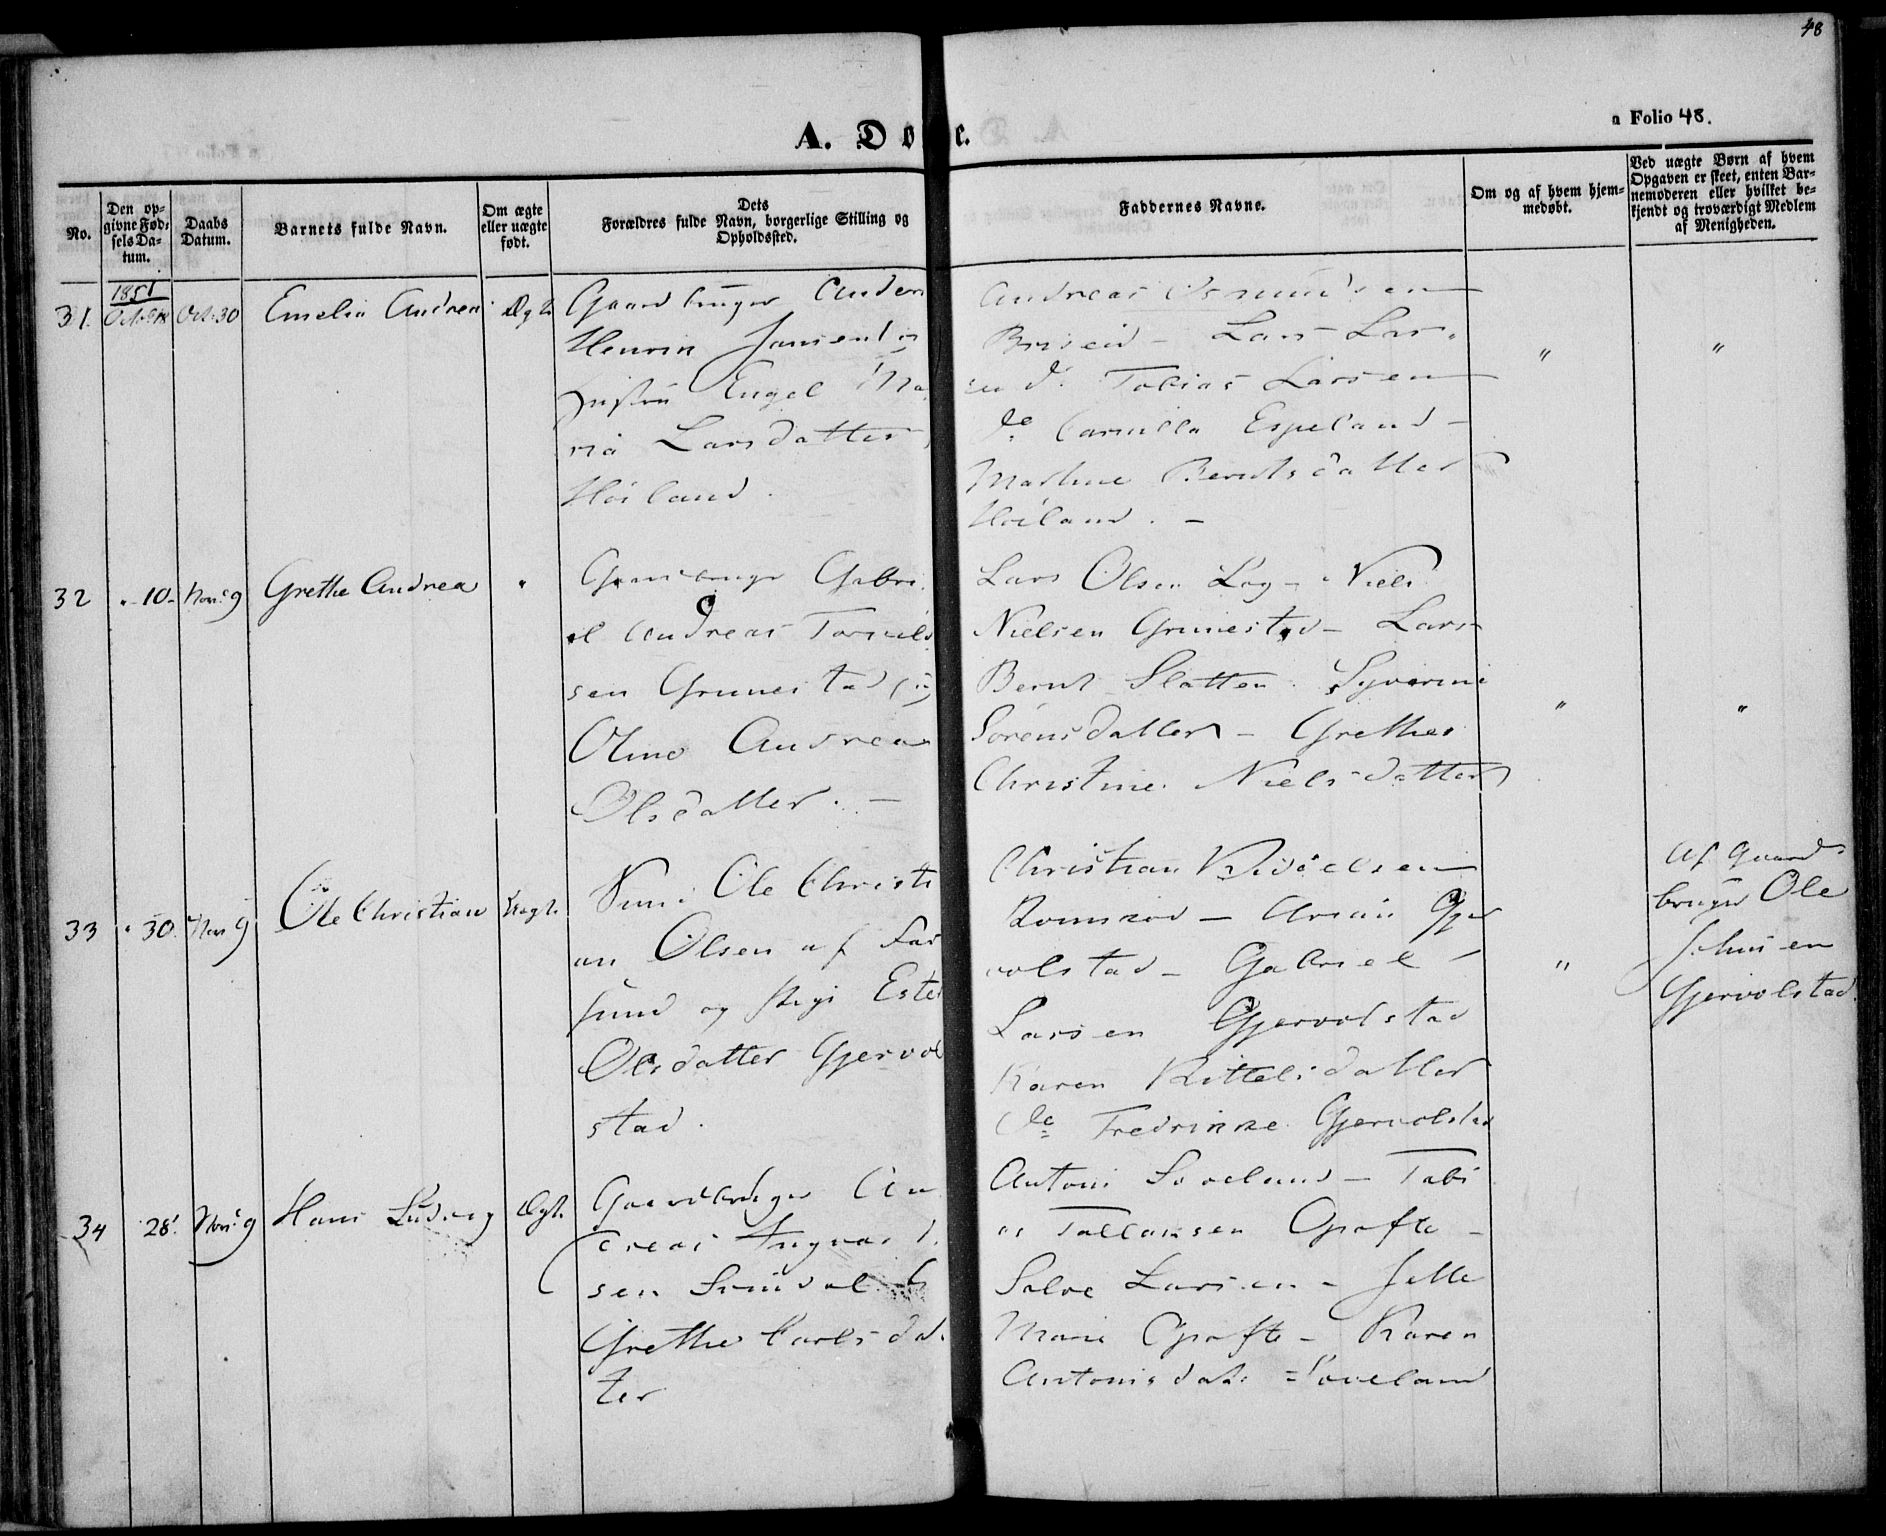 48
n Folio 48.
A. Dø e.
No.
Den op-
givne Fød-
sels Da-
tum.
Daabs
Datum.
Barnets fulde Navn.
Om ægte
eller uægte
født.
Dets
Forældres fulde Navn, borgerlige Stilling og
Opholdssted.
Faddernes Navne.
Om og af hvem hjem-
medøbt.
Ved uægte Børn af hvem
Opgaven er skeet, enten Bar-
nemoderen eller hvilket be-
kjendt og troværdigt Medlem
af Menigheden.
1851
31. Oct. 30 Emelia Andrea Ægt.
Gaardbruger Anders
Henrik Jansen og
Hustru Engel Ma
ria Larsdatter
Høiland.
Andreas Osmundsen
Briseid - Lars Lar-
sen do Tobias Larsen
do Camilla Espeland -
Marthe Berntsdatter
Høiland. -
" "
32 " 10 - Novr 9 Grethe Andrea "
Gaardbruger Gabri
el Andreas Torkils
sen Grunestad og
Oline Andrea
Olsdatter. -
Lars Olsen Log - Niels
Nielsen Grunestad - Lars
Bernt Slatten.
Sørensdatter - Grethe
Christine Nielsdatter
" "
33 " 30. Nov 9 Ole Christian Uægt.
Ole Christi
an Olsen af Far
sund og Pige Ester
Olsdatter Gjervol
stad.
Christian
- Gjer
volstad - Gabriel
Larsen Gjervolstad
Karen Kittelsdatter
do Fredrikke Gjervolstad
"
Af Gaard
bruger Ole
Johnsen
Gjervolstad.
34 28. Novr 9 Hans Ludvig Ægt.
Gaardbruger An
dreas Ingvald
sen
Grethe Carlsdat
ter
Antoni - Tobi
as Tallaksen Opofte -
Salve Larsen - Jette
Marie Opofte - Karen
Antonisdatt.